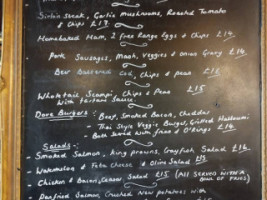 Sirloin steak, Garlic Mushrooms, Roasted Tomato
& Chips £17
Homebaked Ham, 2 free Range eggs & Chips £14
Pork Sausages, Mash, Veggies & Onion Gravy £14
Beer Battered Cod, Chips & peas £15
Whaletail Scampi, Chips & Peas £15
With tartare Sauce
Dave Burgers: - Beef, Smoked Bacon, Cheddar
- Thai Style Veggie Burger, Grilled Halloumi
- Both served with fries and O'Rings £14
Salads:-
- Smoked Salmon, king prawns, Crayfish Salad £16
- Watermelon & Feta cheese & Olive Salad £15
- Chicken & Bacon, Caesar Salad £15 (ALL SERVED WITH A
BOWL OF FRIES)
- Panfried Salmon, Crushed New potatoes with